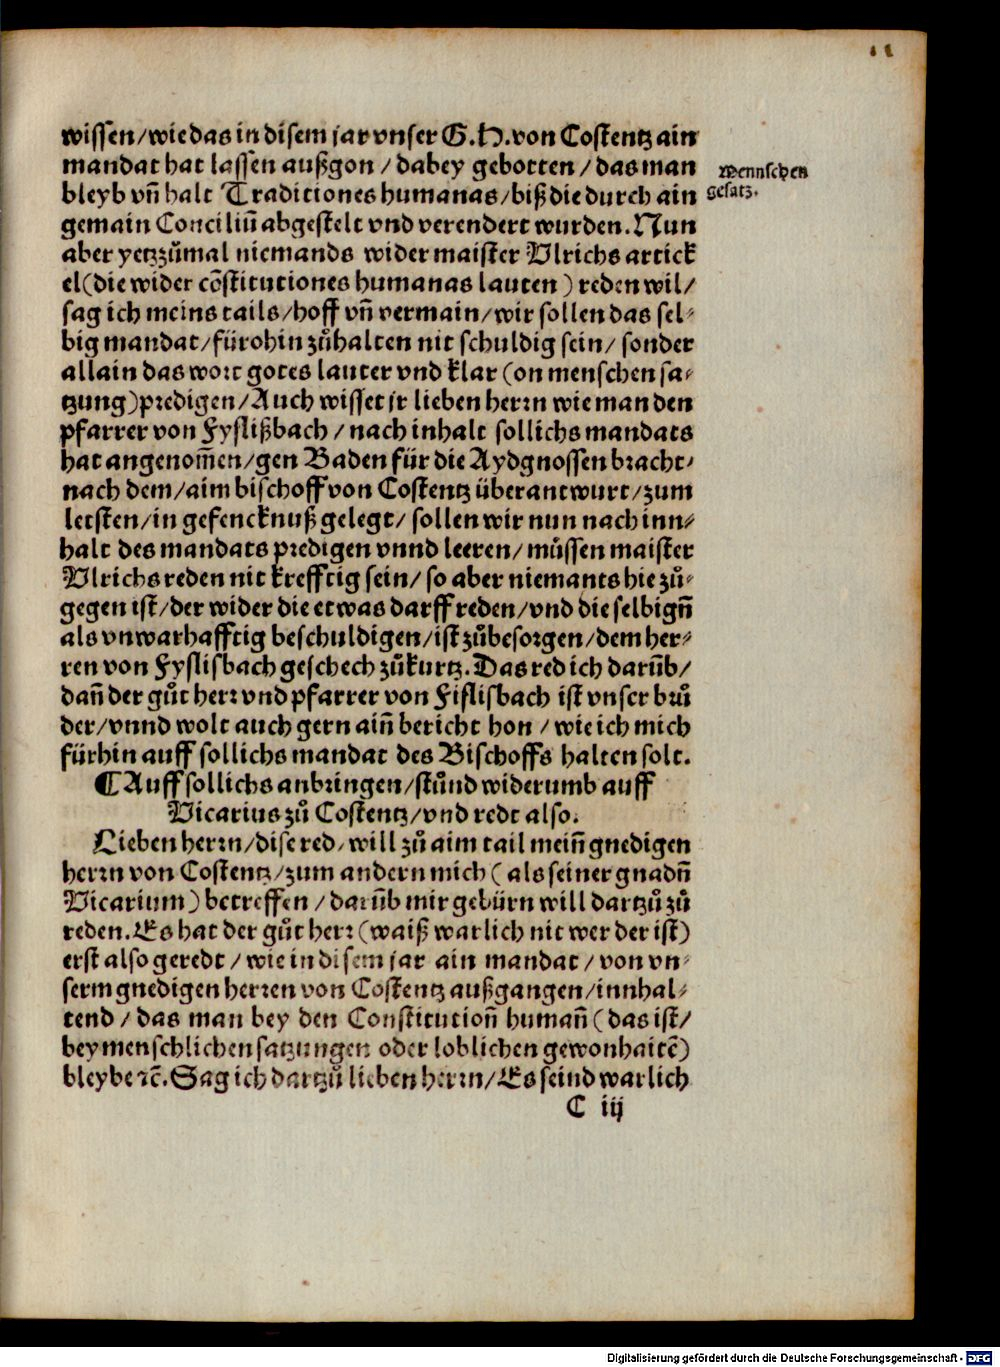 11
wissen/wie das in disem jar vnser G.H.von Costentz ain
mandat hat lassen außgon/dabey gebotten/das man
bleyb vñ halt Traditiones humanas/biß die durch ain
gemain Conciliũ abgestelt vnd verendert wurden.Nun
aber yetzzůmal niemands wider maister Vlrichs artick
el(die wider cõstitutiones humanas lauten) reden wil/
sag ich meins tails/hoff vñ vermain/wir sollen das sel⸗
big mandat/fürohin zůhalten nit schuldig sein/ sonder
allain das wort gotes lauter vnd klar (on menschen sa⸗
tzung)predigen/Auch wisset jr lieben herrn wie man den
pfarrer von Fyslißbach/nach inhalt sollichs mandats
hat angenom̃en/gen Baden für die Aydgnossen bracht⸗
nach dem/aim bischoff von Costentz überantwurt/zum
letsten/in gefencknuß gelegt/ sollen wir nun nach inn⸗
halt des mandats predigen vnnd leeren/ můssen maister
Vlrichs reden nit krefftig sein/ so aber niemants hie zů⸗
gegen ist/der wider die etwas darff reden/vnd die selbigñ
als vnwarhafftig beschuldigen/ist zůbesorgen/dem her⸗
ren von Fyslisbach geschech zůkurtz.Das red ich darũb/
dañ der gůt herr vnd pfarrer von Fislisbach ist vnser brů
der/vnnd wolt auch gern aiñ bericht hon/wie ich mich
fürhin auff sollichs mandat des Bischoffs halten solt.
¶Auff sollichs anbringen/stůnd widerumb auff
Vicarius zů Costentz/vnd redt also.
Lieben herrn/dise red/will zů aim tail meiñ gnedigen
herrn von Costentz/zum andern mich (als seiner gnadñ
Vicarium)betreffen/darũb mir gebürn will dartzů zů
reden.Es hat der gůt herr(waiß warlich nit wer der ist)
erst also geredt/wie in disem jar ain mandat/von vn⸗
serm gnedigen herren von Costentz außgangen/innhal⸗
tend/das man bey den Constitutioñ humañ(das ist/
bey menschlichen satzungen oder loblichen gewonhaitẽ)
bleybe ꝛc̃.Sag ich dartzů lieben herrn/Es seind warlich
C iij
Mennschen
gesatz.
Digitalisierung gefördert durch die Deutsche Forschungsgemeinschaft - DFG